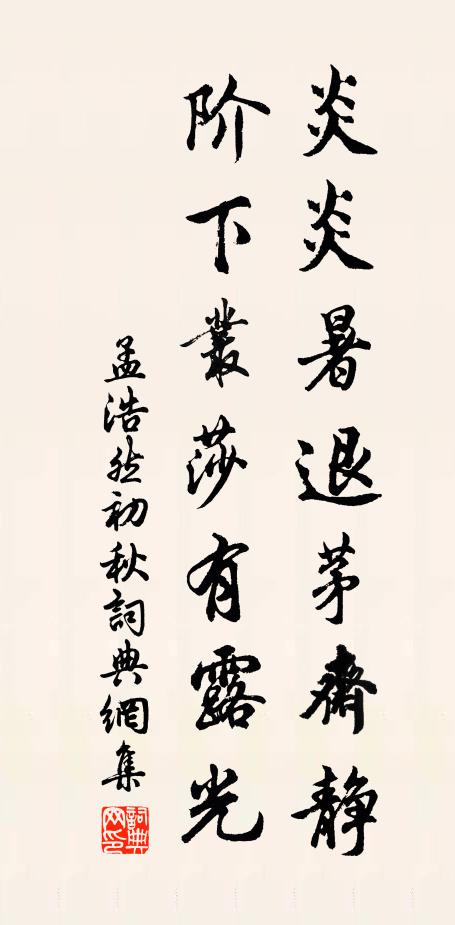 炎炎暑退茅齋静
阶下叢莎有露光
孟浩然初秋詞典網集
詞典
网印